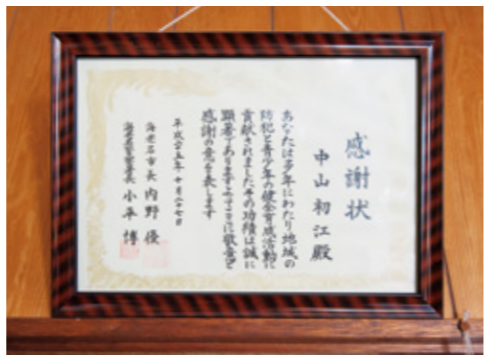 感謝状
中山初江殿
あなたは多年にわたり地域の
防犯と青少年の健全育成活動に
貢献されましたその功績は誠に
顕著でありますよってここに敬意と
感謝の意を表します
平成二十五年十月二十七日
海老名市長 内野 優
海老名警察署長 小平 博